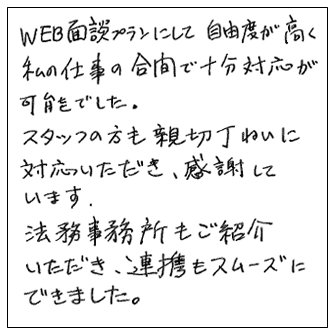 WEB面談プランにして自由度が高く
私の仕事の合間で十分対応が
可能でした。
スタッフの方も親切丁ねいに
対応いただき、感謝して
います.
法務事務所もご紹介
いただき、連携もスムーズに
できました。